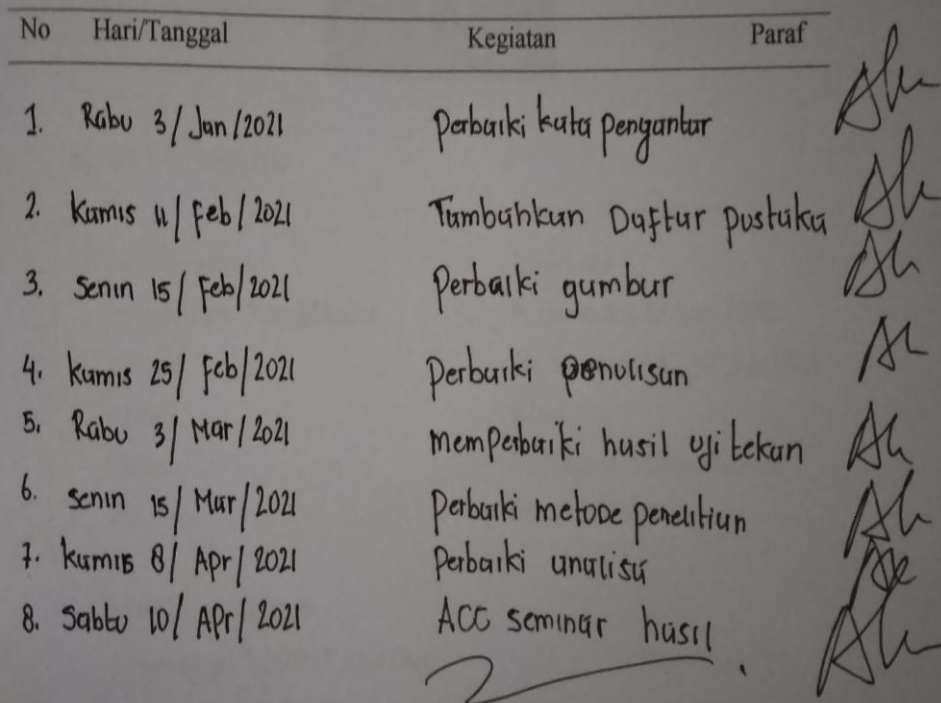 No Hari/Tanggal Kegiatan Paraf
1. Rabu 3/Jan/2021 Perbaiki kata pengantar
2. Kamis 11/Feb/2021 Tambahkan Daftar pustaka
3. Senin 15/Feb/2021 Perbaiki gambar
4. kamis 25/Feb/2021 Perbaiki penulisan
5. Rabu 3/Mar/2021 memperbaiki hasil uji tekan
6. Senin 15/Mar/2021 Perbaiki metode penelitian
7. kamis 8/Apr/2021 Perbaiki analisa
8. Sabtu 10/APr/2021 ACC seminar hasil